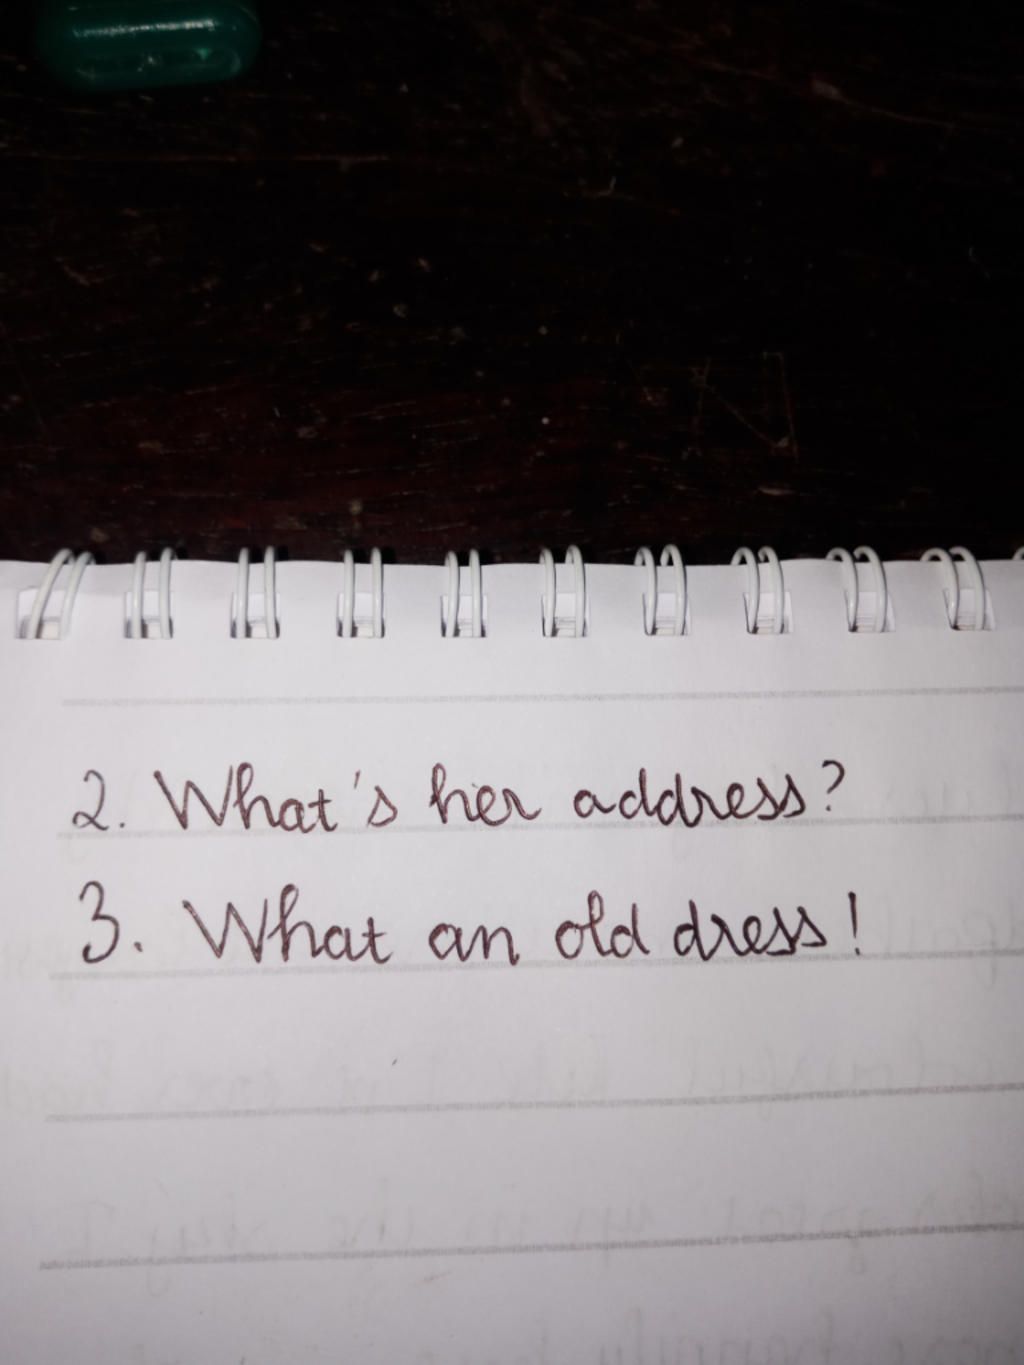 2. What's her address?
3. What an old dress!